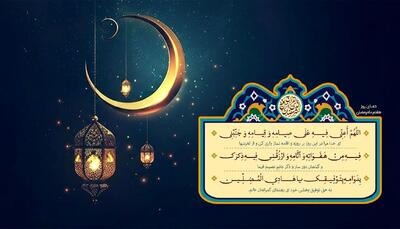 دعای روز
هفتم ماه رمضان
اللهم أعنی فیه علی صیامه و قیامه و جنبنی
ای خدا مرا در این روز بر روزه و اقامه نماز یاری کن و از لغزشها
فیه من هفواته و آثامه و ارزقنی فیه ذکرک
و گناهان دور ساز و ذکر دائم نصیبم فرما
بدوامه بتوفیقک یا هادی المضلین
به حق توفیق بخشی خود ای رهنمای گمراهان عالم.